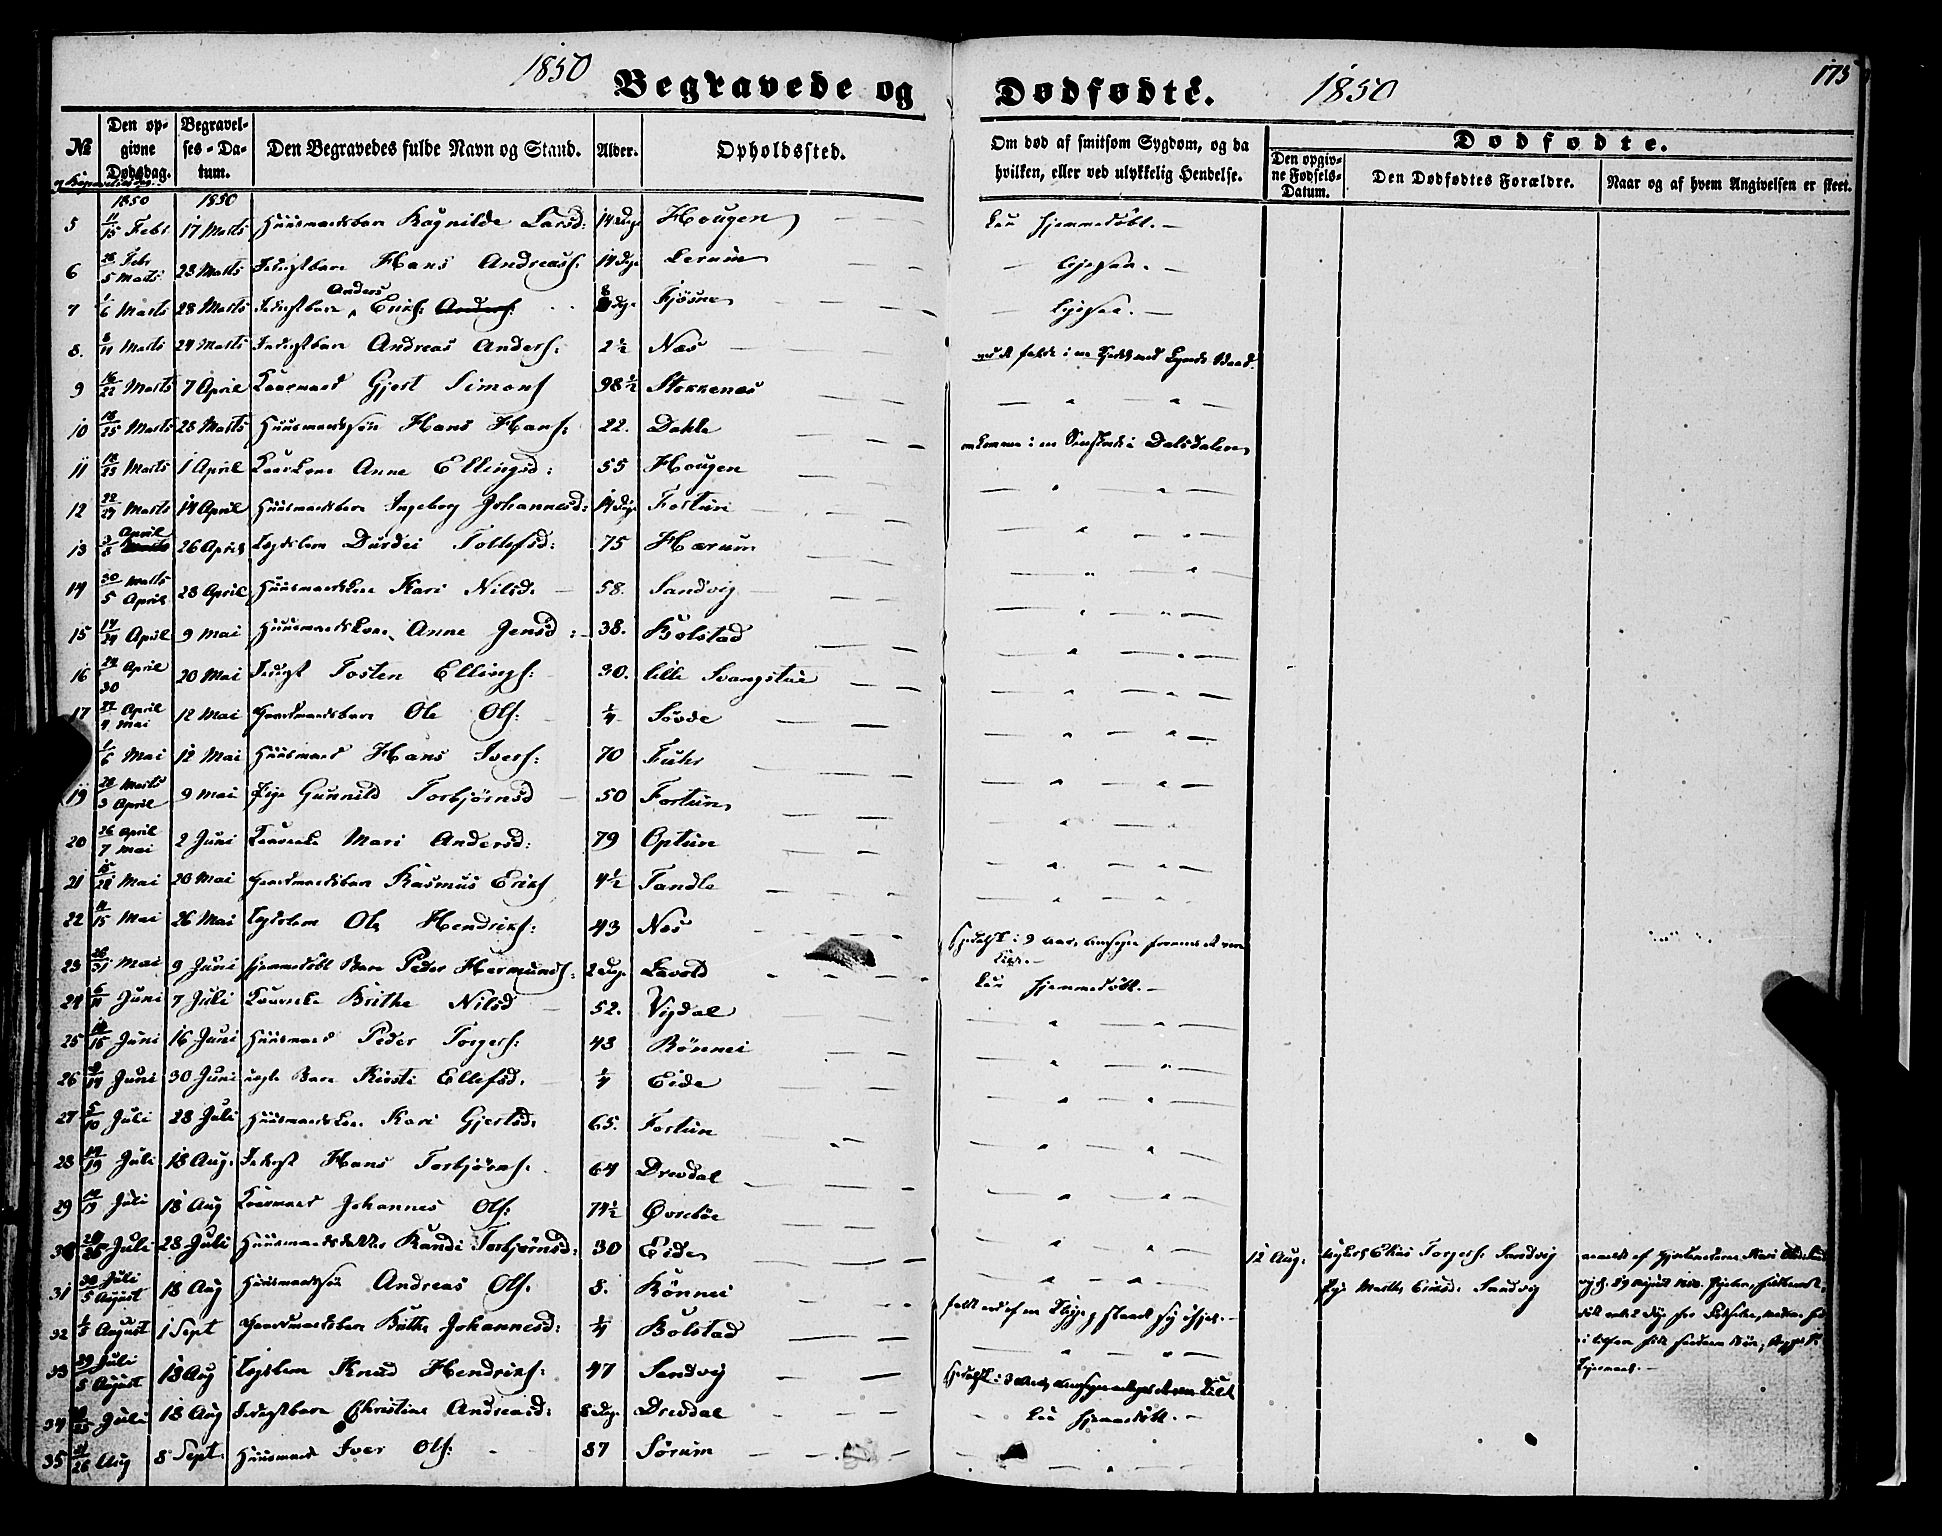 1850 Begravede og Dødfødte. 1850 175
№ Den opgivne Dødsdag. Begravelses-Datum. Den Begravedes fulde Navn og Stand. Alder. Opholdssted. Om død af smitsom Sygdom, og da hvilken, eller ved ulykkelig Hendelse. Dødfødte. Den opgivne Fødsels-Datum. Den Dødfødtes Forældre. Naar og af hvem Angivelsen er skeet.
1850 1850
5 11/15 Febr 17 Marts Huusmandsbarn Ragnilde Larsd: 14 Dage Hougen kun hjemmedøbt. —
6 28 Febr 5 Marts 23 Marts Inderstbarn Hans Andreass: 14 Dge Lerum — ligesaa. —
7 1/6 Marts 28 Marts Inderstbarn Anders Eriks: Anders: 8 Dge Fjøsne — ligesaa. —
8. 8/11 Marts 24 Marts Inderstbarn Andreas Anders: 2½ Næs
9 16/22 Marts 7 April Kaarmand Gjert Simons 98½ Stokkenæs
10 18/25 Marts 28 Marts Huusmandssøn Hans Hans: 22. Dahle omkommen i en Sneskred i Dalsdalen
11 18/23 Marts 1 April Kaarkone Anne Ellingsd: 55 Hougen
12 22/29 Marts 14 April Huusmandsbarn Ingeborg Johannesd: 14 Dage Fortun
13 3/8 April 26 April Lægdslem Durdei Tollefsd: 75 Hærum
14 30 Marts 5 April 28 April Huusmandskone Kari Nilsd. 58. Sandvig
15 17/24 April 9 Mai Huusmandskone Anne Jensd: 38. Bolstad
16 24 April 30 20 Mai Inderst Tosten Ellings: 30. lille Svangstue
17 29 April 4 Mai 12 Mai Gaardmandsbarn Ole Ols: ¼ Søvde
1/6 Mai 12 Mai Huusmand Hans Ivers: 70 Fuhr
19 28 Marts 3 April 9 Mai Pige Gunnild Torbjørnsd 50 Fortun
20 26 April 7 Mai 2 Juni Kaarenke Mari Andersd: 79 Optun
21 15/22 Mai 20 Mai Gaardmandsbarn Rasmus Eriks 4½ Tandle
22 11/15 Mai 26 Mai Lægdslem Ole Hendriks: 43 Næs
23 26/31 Mai 9 Juni hjemmedøbt Barn Peder Hermunds: 2 Dage Lavold kun hjemmedøbt. —
24 6/11 Juni 7 Juli Kaarenke Brithe Nilsd 52. Vigdal
25 10/15 Juni 16 Juni Huusmand Peder Torgers: 48 Rønnei
26 9/14 Juni 30 Juni uægte Barn Kirsti Ellefsd. ¼ Eide
27 5/10 Juli 28 Juli Huusmandskone Kari Gjertsd: 65. Fortun
28 14/19 Juli 18 Aug. Inderst Hans Torbjørns: 64 Drevdal
29 14/19 Juli 18 Aug Kaarmand Johannes Ols: 74½ Øvrebøe
30 Juli 28 Juli Huusmandsdatter Randi Torbjørnsd: 30 Eide 12 Aug: Elias Torgers: Sandvig
31 30 Juli 5 August 18 Aug Huusmandssøn Andreas Ols: 8. Rønnei Pige Marthe Eriksd: Sandvig
32 August 1 Sept Gaardmandsbarn Brithe Johannesd: ¼ Bolstad
33 29 Juli 5 August 18 Aug Lægdslem Knud Hendriks: 47 Sandvig
34 Juli 18 Aug Inderstbarn Christine Andreasd: 8 Dage Drevdal kun hjemmedøbt. —
35 21/26 Aug 8 Sept. Huusmand Iver Ols: 87 Sørum